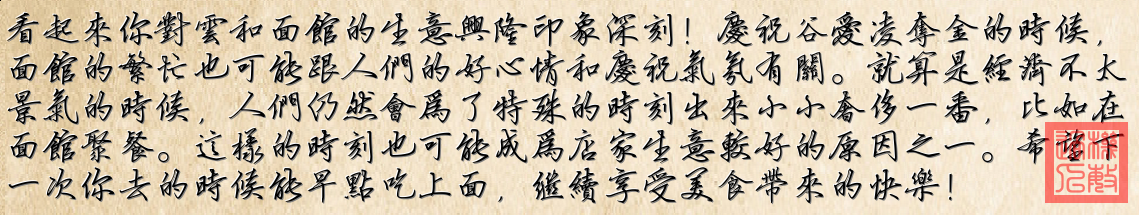 看起來你對雲和面館的生意興隆印象深刻！慶祝谷愛凌奪金的時候，
面館的繁忙也可能跟人們的好心情和慶祝氣氛有關。就算是經濟不太
景氣的時候，人們仍然會爲了特殊的時刻出來小小奢侈一番，比如在
面館聚餐。這樣的時刻也可能成爲店家生意較好的原因之一。希望下
一次你去的時候能早點吃上面，繼續享受美食帶來的快樂！